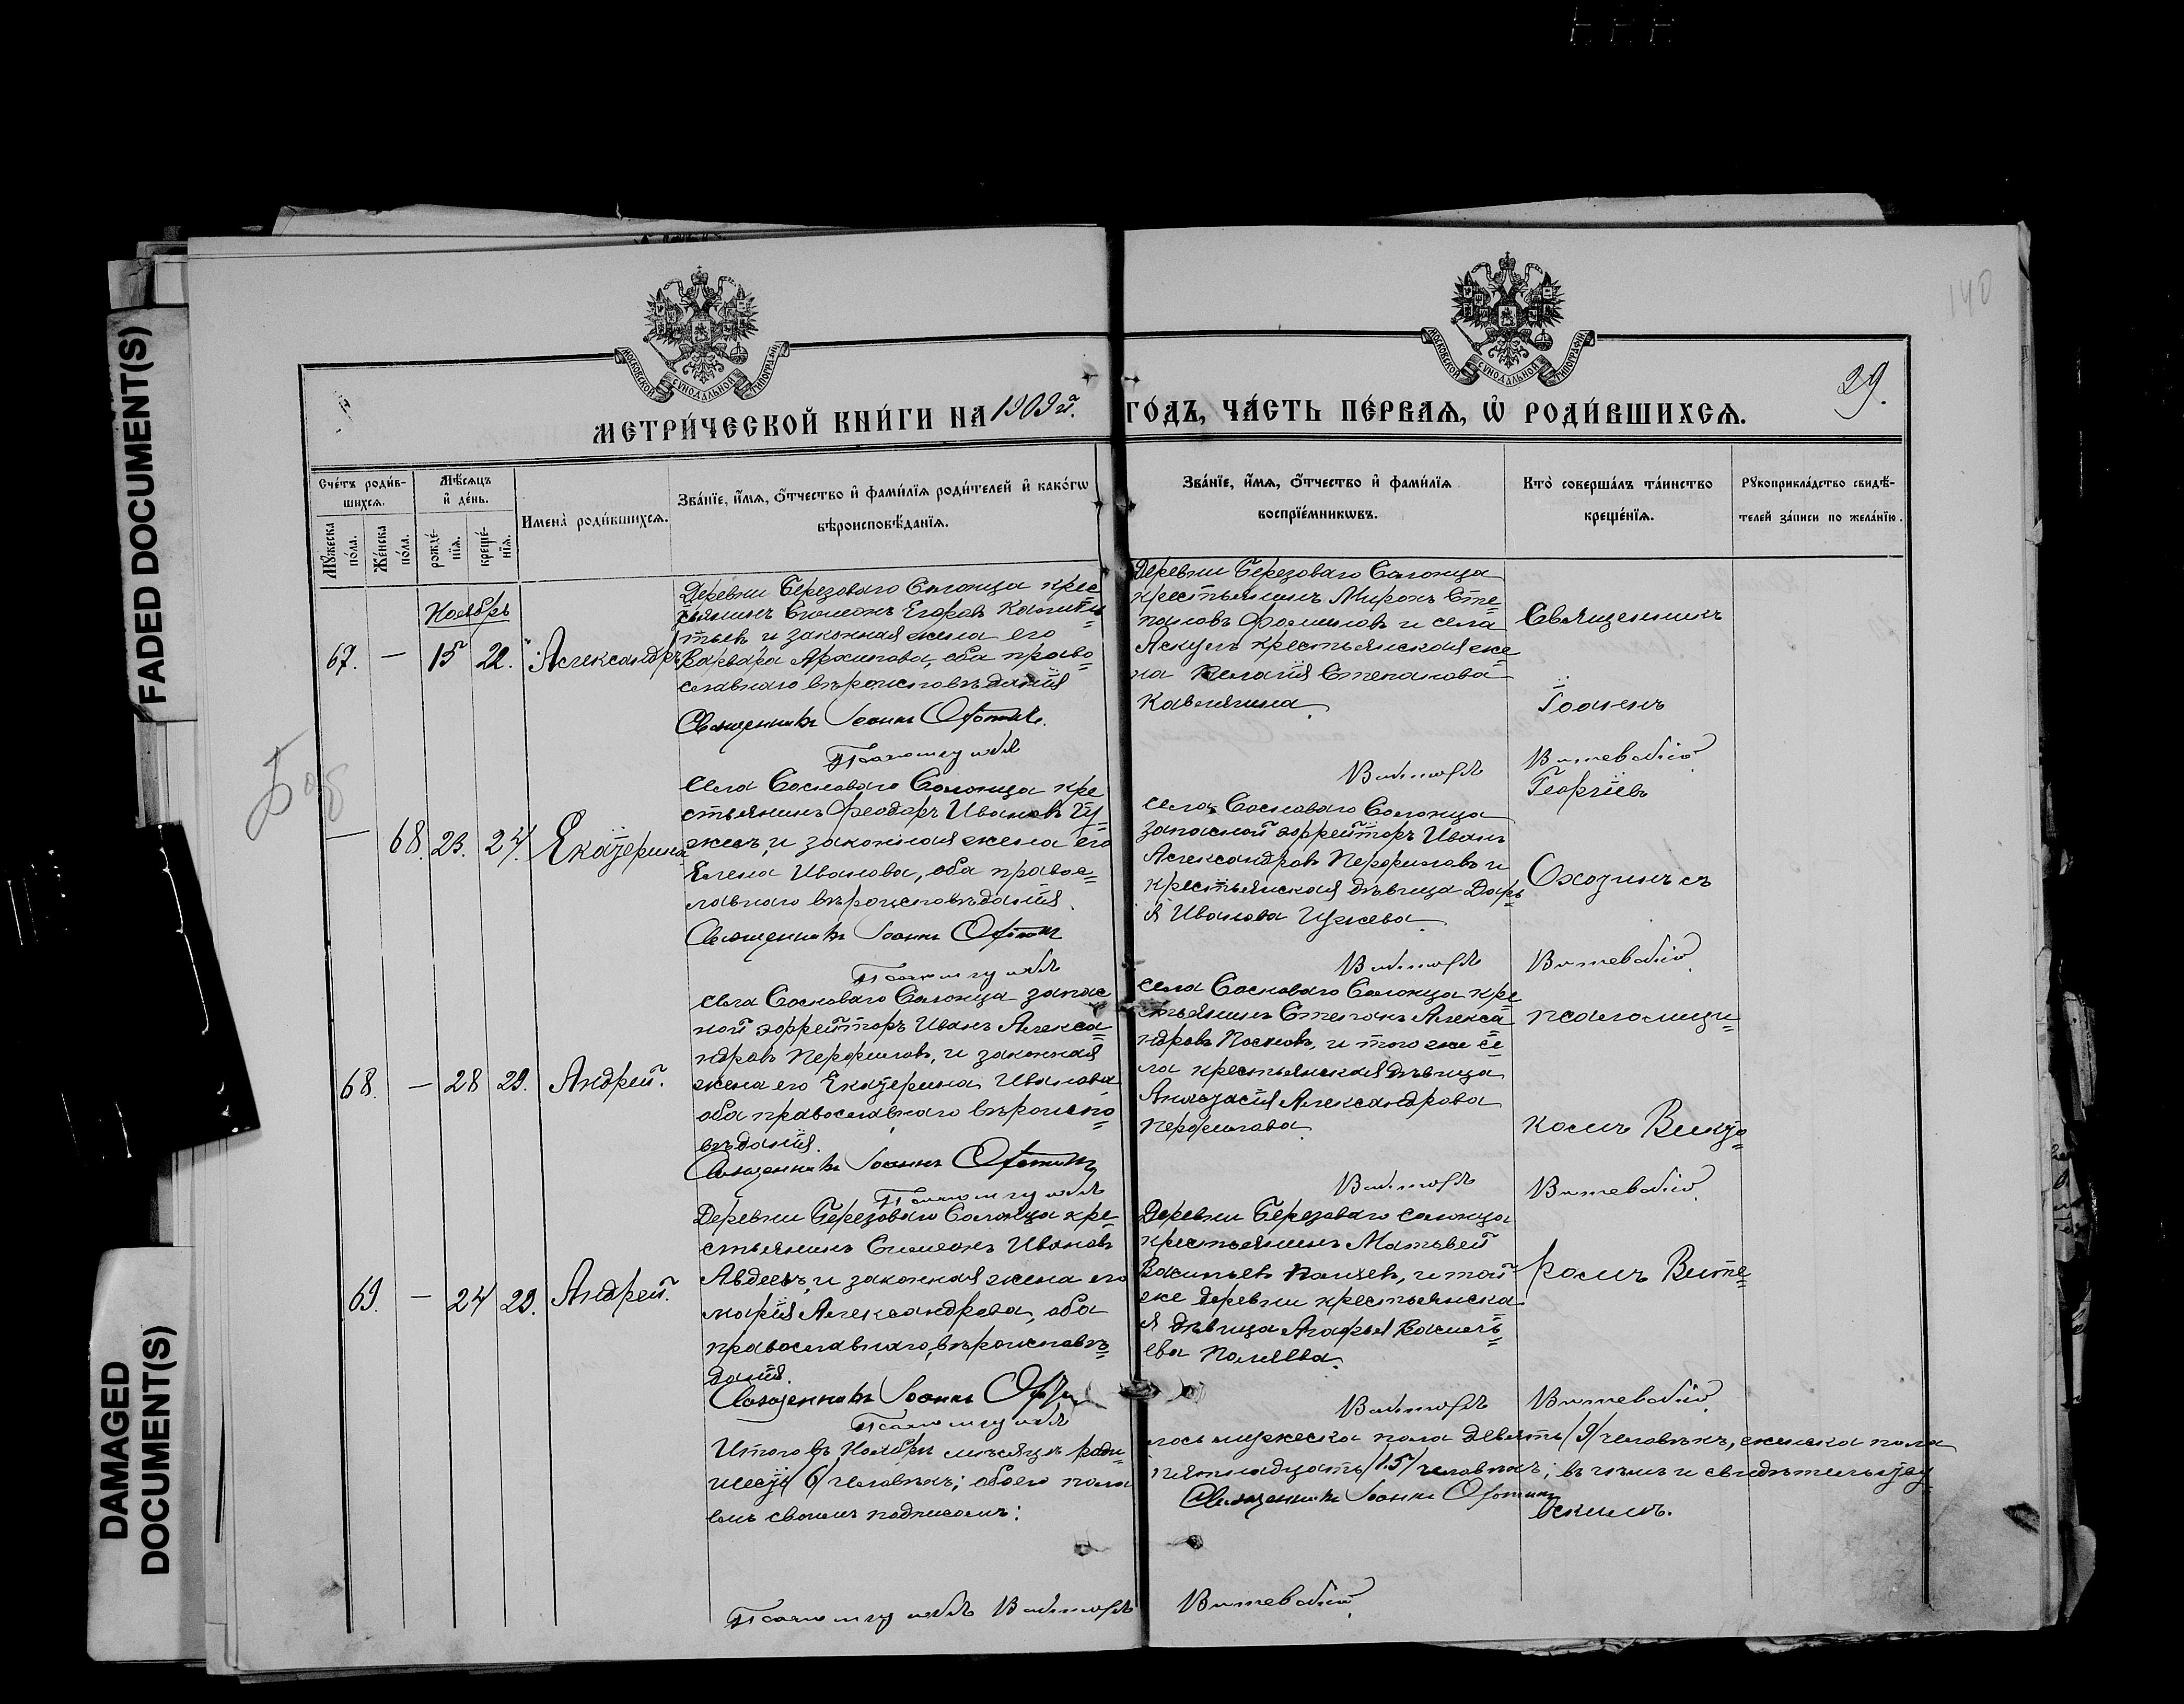 FADED DOCUMENT(S)
DAMAGED
DOCUMENT(S)
140
29.
МОСКОВСКОЙ СѴНОДАЛЬНОЙ ТИПОГРАФІИ
МОСКОВСКОЙ СѴНОДАЛЬНОЙ ТИПОГРАФІИ
МЕТРИ́ЧЕСКОЙ КНИ́ГИ НА 1909 й. ГО́ДЪ, ЧА́СТЬ ПЕ́РВАѦ, Ѡ҆ РОДИ́ВШИХСѦ.
Сче́тъ роди́в-
шихсѧ.
Мꙋ́жеска
по́ла.
Же́нска
по́ла.
Мѣ́сѧцъ
и҆ де́нь.
рожде́-
нїѧ.
креще́-
нїѧ.
Имена̀ роди́вшихсѧ.
Зва́нїе, и҆́мѧ, ѻ҆́тчество и҆ фами́лїѧ роди́телей и҆ како́гѡ
вѣроисповѣ́данїѧ.
Зва́нїе, и҆́мѧ, ѻ҆́тчество и҆ фами́лїѧ
воспрїе́мникѡвъ.
Кто̀ соверша́лъ та́инство
креще́нїѧ.
Рꙋкоприкла́дство свидѣ́-
телей за́писи по жела́нїю.
Ноябрь
67. — 15 22. Александръ
Деревни Березоваго Солонца крес=
тьянинъ Симеонъ Егоровъ
и законная жена его
Варвара Архипова, оба право=
славнаго вѣроисповѣданія
Священникъ Іоаннъ
Псаломщикъ
Деревни Березоваго Солонца
крестьянинъ Миронъ Сте=
пановъ Фоминовъ и села
Аскулъ крестьянская же=
на Пелагія Степанова
Викторъ
Священникъ
Іоаннъ
Витевскій
— 68. 23. 24. Екатерина
Села Сосноваго Солонца кре
стьянинъ Феодоръ Ивановъ
и законная жена его
Елена Иванова, оба правос=
лавнаго вѣроисповѣданія.
Священникъ Іоаннъ
Псаломщикъ
Села Сосноваго Солонца
запасной эфрейторъ Иванъ
Александровъ Перфиловъ и
крестьянская дѣвица Дарь
я Иванова
Викторъ
Георгіевъ
Витевскій
68. — 28 29. Андрей.
Села Сосноваго Солонца запас
ной эфрейторъ Иванъ Алекса=
ндровъ Перфиловъ, и законная
жена его Екатерина Иванова
оба православнаго вѣроиспо=
вѣданія.
Священникъ Іоаннъ
Псаломщикъ
Села Сосноваго Солонца кре=
стьянинъ Степанъ Алекса=
ндровъ и того же се=
ла крестьянская дѣвица
Анастасія Александрова
Перфилова.
Викторъ
псаломщи=
комъ
Витевскій
69. — 24 29. Андрей.
Деревни Березоваго Солонца кре=
стьянинъ Симеонъ Ивановъ
Авдеевъ, и законная жена его
Марія Александрова, оба
православнаго вѣроисповѣ=
данія.
Священникъ Іоаннъ
Псаломщикъ
Деревни Березоваго Солонца
крестьянинъ Матвей
Васильевъ и той
же деревни крестьянска
я дѣвица Агафья Василь=
ева
Викторъ
ромъ Вите=
Витевскій
Итого въ Ноябрѣ мѣсяцѣ роди=лось мужеска пола девять /9/ человѣкъ, женска пола
шесть /6/ человѣкъ; обоего пола пятнадцать /15/ человѣкъ; въ чемъ и свидѣтельству
емъ своимъ подписомъ: Священникъ Іоаннъ
вскимъ.
Псаломщикъ Викторъ Витевскій